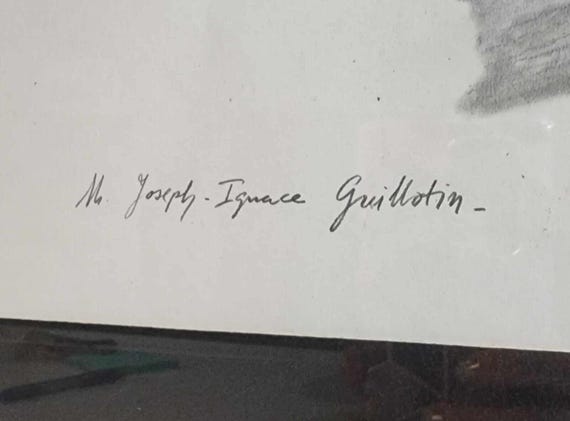 M. Joseph-Ignace Guillotin_